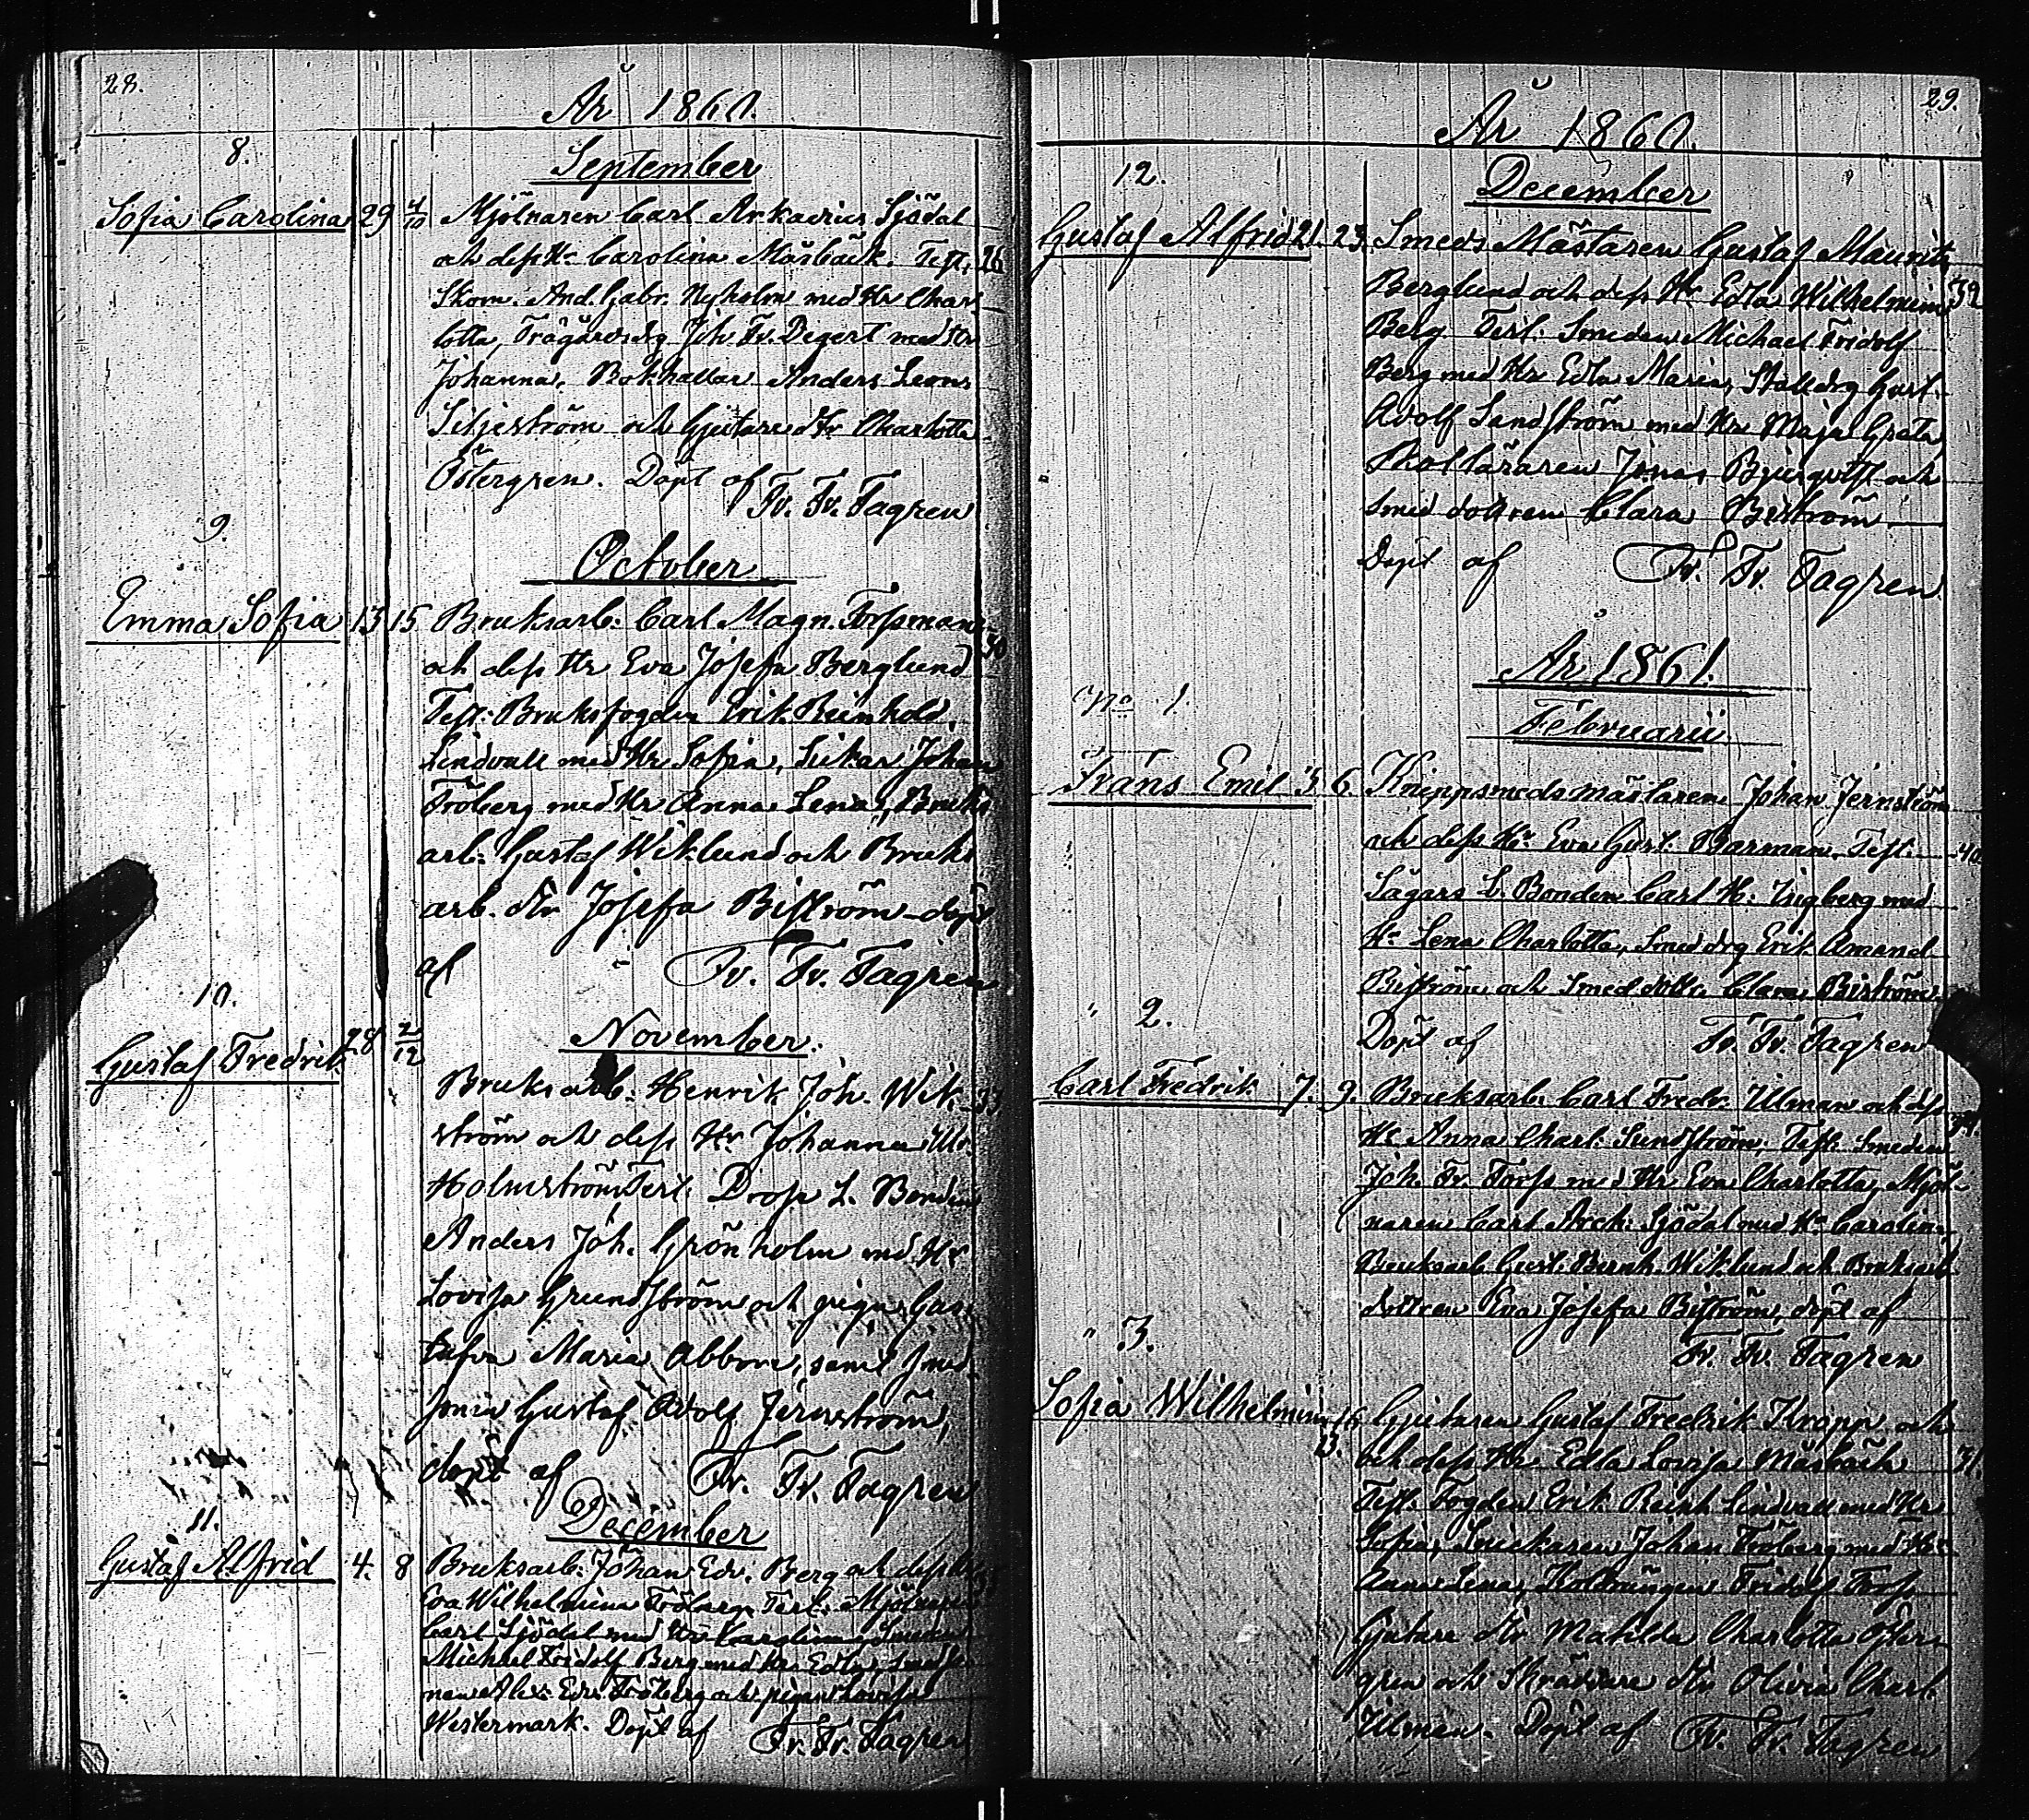 28.
År 1860.
8.
September
Sofia Carolina 29 4/10 Mjölnaren Carl Arkadius Sjödal
och dess Hr Carolina Måsbäck. Test. 26
Skom. And. Gabr. Nyholm med Hr Char-
lotta, Trägårdsdrg Joh. Fr. Degert med Hr
Johanna. Bokhållar Anders Leonr
Liljeström och Gjutare dtr Charlotta
Östergren. Döpt af
Fr. Fr. Fagren
9.
October
Emma Sofia 13 15 Bruksarb. Carl Magn. Forssman
och dess Hr Eva Josefa Berglund 30
Test: Bruksfogden Erik Reinhold
Lindvall med Hr Sofia, Johan
Fröberg med Hr Anna Lena, Bruks
arb. Gustaf Wiklund och Bruks
arb. dtr Josefa Biström döpt
af Fr. Fr. Fagren
10.
November.
Gustaf Fredrik 28 2/12
Bruksarb. Henrik Joh. Wik- 33
ström och dess Hr Johanna Ulr.
Holmström Test: Dross L. Bonden
Anders Joh. Grönholm med Hr
Lovisa Grundström och pigan Gus-
tafva Maria Abbom, samt smed
sonen Gustaf Adolf Jernström,
döpt af Fr. Fr. Fagren
11.
December
Gustaf Alfrid 4. 8 Bruksarb. Johan Edv. Berg och dess Hr
Eva Wilhelmina Fröberg. Test. Mjölnaren
Carl Sjödal med Hr Carolina, Smeden
Michael Fridolf Berg med Hr Edla, smedso-
nen Alex. Edv. Fröberg och pigan Lovisa
Westermark. Döpt af Fr. Fr. Fagren
29.
År 1860.
12.
December
Gustaf Alfrid 21. 23. Smeds Mästaren Gustaf Maurits
Berglund och dess Hr Edla Wilhelmina 39
Berg. Test: Smeden Michael Fridolf
Berg med Hr Edla Maria, Stalldrg Gust.
Adolf Sandström med Hr Maja Greta
Skolläraren Jonas Bjurqvist och
smed dottren Clara Biström
Döpt af Fr. Fr. Fagren
År 1861.
No 1.
Februarii
Frans Emil 3 6. Knippsmedsmästaren Johan Jernström
och dess Hr Eva Gust. Barman. Test. 40
Sågars L. Bonden Carl H. Engberg med
Hr Lena Charlotta, Smed drg Erik Amand
Biström och Smed dottr. Clara Biström.
Döpt af Fr. Fr. Fagren
" 2.
Carl Fredrik 7. 9. Bruksarb. Carl Fredr. Ulman och dess
Hr Anna Charl. Sundström, Test: Smeden
Joh. Fr. Forss med Hr Eva Charlotta, Mjöl-
naren Carl Arck: Sjödal med Hr Carolina,
Bruksarb Gust. Bernh. Wiklund och Bruksarb
dottren Eva Josefa Biström, döpt af
Fr. Fr. Fagren
" 3.
Sofia Wilhelmina 16 Gjutaren Gustaf Fredrik Kropp och
23. och dess Hr Edla Lovisa Måsbäck 31.
Test. Fogden Erik Reinh. Lindvall med Hr
Sofia, Johan Fröberg med Hr
Anna Lena, Fridolf Forss
Gjutare dtr Matilda Charlotta Öster-
gren och Skräddare dtr Olivia Charl.
Ulman. Döpt af Fr. Fr. Fagren